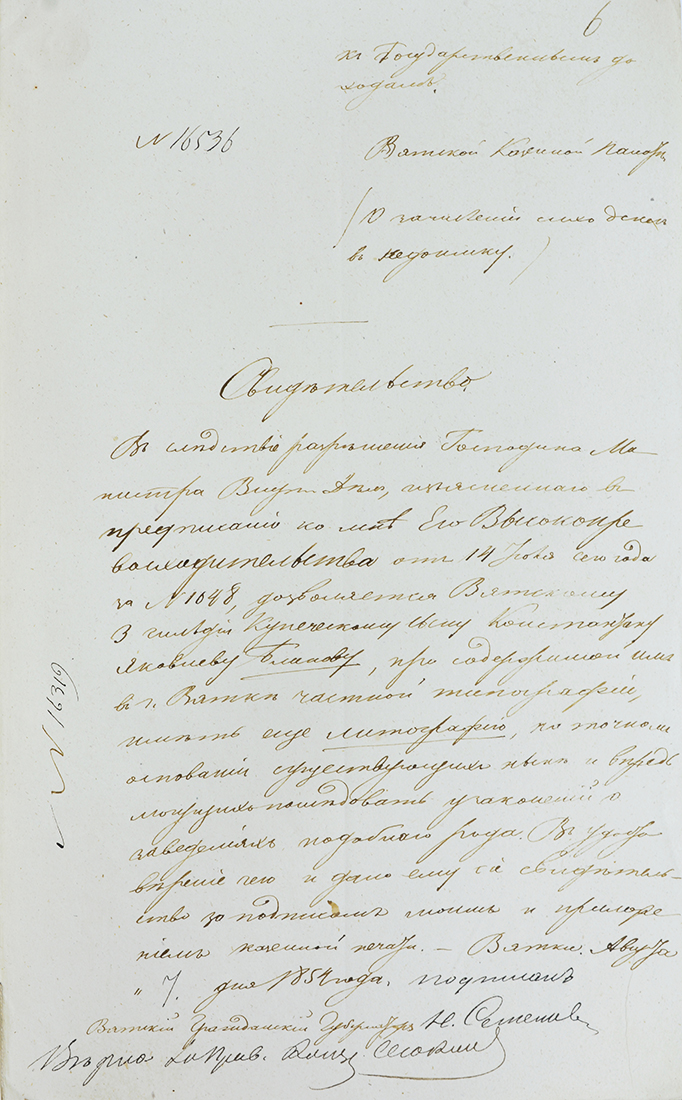 6
къ Государственнымъ до
ходамъ.
N 16536
Вятской Казенной Палаты
(О зачисленіи сихъ денегъ
въ недоимку.)
Свидѣтельство.
Въ слѣдствіе разрѣшенія Господина Ми
нистра Внутр. Дѣлъ, изъясненнаго въ
предписаніи ко мнѣ Его Высокопре
восходительства отъ 14 Іюля сего года
за N 1048, дозволяется Вятскому
3 гильдіи Купеческому сыну Константину
Яковлеву Блинову, при содержимой имъ
въ г. Вяткѣ частной типографіи,
имѣть еще литографію, на точномъ
основаніи существующихъ нынѣ и впредь
могущихъ послѣдовать узаконеній о
заведеніяхъ подобнаго рода. Въ удосто
вѣреніе чего и дано ему сіе свидѣтель-
ство за подписомъ моимъ и приложе
ніемъ казенной печати. – Вятка. Августа
„ 7. дня 1854 года. подписалъ
Вятскій Гражданскій Губернаторъ Н. Семеновъ
Вѣрно
N 16319